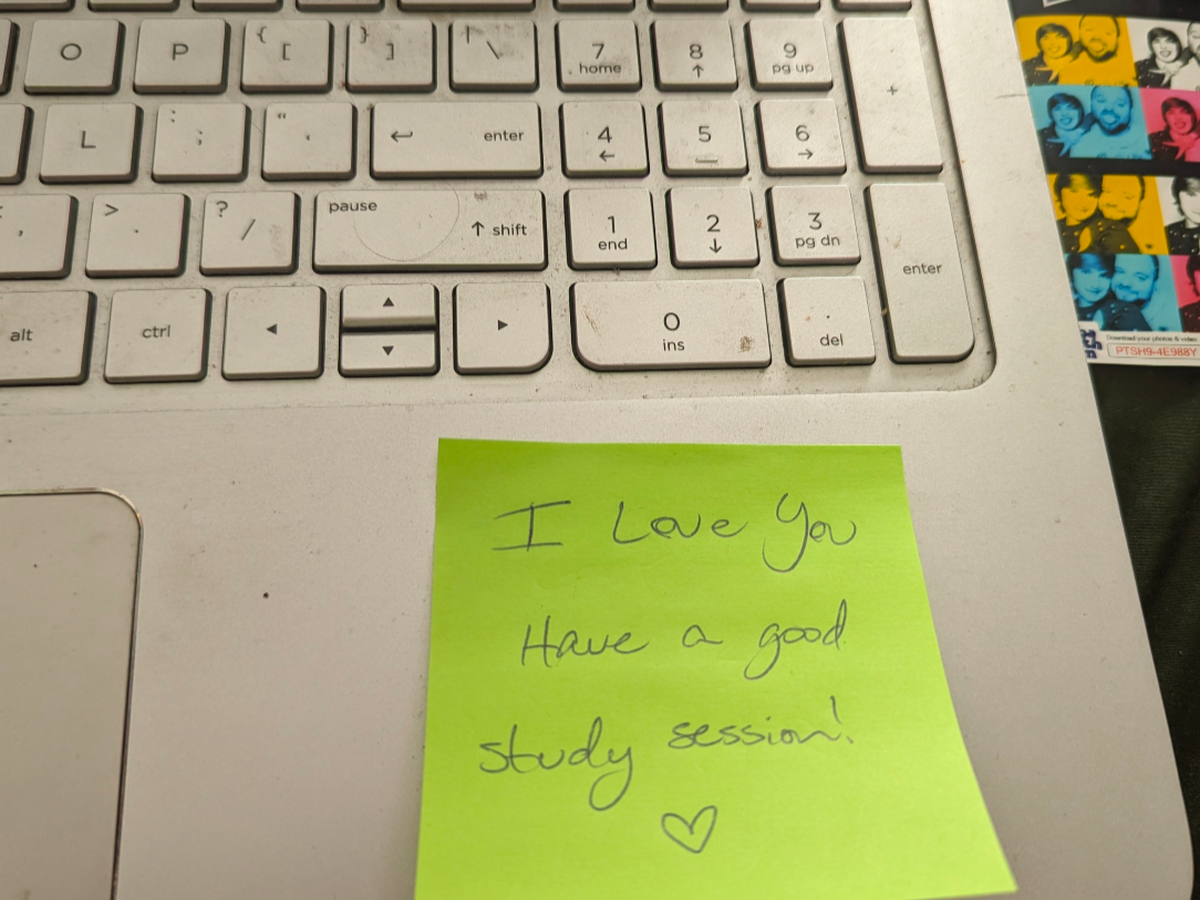 O P { [ } ] | \ 7 home 8 ↑ 9 pg up +
L : ; " ' ← enter 4 ← 5 6 →
, > . ? / pause ↑ shift 1 end 2 ↓ 3 pg dn enter
alt ctrl ◀ ▲ ▼ ▶ 0 ins . del
Download your photos & video
PTSH9-4E988Y
I Love You
Have a good
study session!
♡